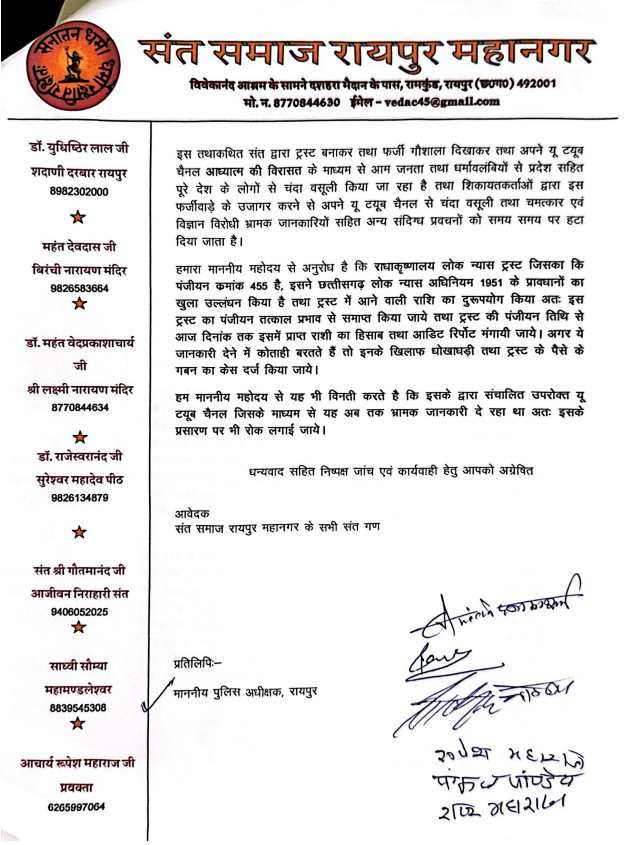 सनातन धर्मो
संत समाज रायपुर महानगर
विवेकानंद आश्रम के सामने दशहरा मैदान के पास, रामकुंड, रायपुर (छ०ग०) 492001
मो. न. 8770844630 ईमेल - vedac45@gmail.com
डॉ. युधिष्ठिर लाल जी
शदाणी दरबार रायपुर
8982302000
महंत देवदास जी
बिरंची नारायण मंदिर
9826583664
डॉ. महंत वेदप्रकाशाचार्य
जी
श्री लक्ष्मी नारायण मंदिर
8770844634
डॉ. राजेस्वरानंद जी
सुरेश्वर महादेव पीठ
9826134879
संत श्री गौतमानंद जी
आजीवन निराहारी संत
9406052025
साध्वी सौम्या
महामण्डलेश्वर
8839545308
आचार्य रूपेश महाराज जी
प्रवक्ता
6265997064
इस तथाकथित संत द्वारा ट्रस्ट बनाकर तथा फर्जी गौशाला दिखाकर तथा अपने यू टयूब
चैनल आध्यात्म की विरासत के माध्यम से आम जनता तथा धर्मावलंबियों से प्रदेश सहित
पूरे देश के लोगों से चंदा वसूली किया जा रहा है तथा शिकायतकर्ताओं द्वारा इस
फर्जीवाड़े के उजागर करने से अपने यू टयूब चैनल से चंदा वसूली तथा चमत्कार एवं
विज्ञान विरोधी भ्रामक जानकारियों सहित अन्य संदिग्ध प्रवचनों को समय समय पर हटा
दिया जाता है।
हमारा माननीय महोदय से अनुरोध है कि राधाकृष्णालय लोक न्यास ट्रस्ट जिसका कि
पंजीयन कमांक 455 है, इसने छत्तीसगढ़ लोक न्यास अधिनियम 1951 के प्रावधानों का
खुला उल्लंघन किया है तथा ट्रस्ट में आने वाली राशि का दुरूपयोग किया अतः इस
ट्रस्ट का पंजीयन तत्काल प्रभाव से समाप्त किया जाये तथा ट्रस्ट की पंजीयन तिथि से
आज दिनांक तक इसमें प्राप्त राशी का हिसाब तथा आडिट रिर्पोट मंगायी जाये। अगर ये
जानकारी देने में कोताही बरतते हैं तो इनके खिलाफ धोखाधड़ी तथा ट्रस्ट के पैसे के
गबन का केस दर्ज किया जाये।
हम माननीय महोदय से यह भी विनती करते है कि इसके द्वारा संचालित उपरोक्त यू
टयूब चैनल जिसके माध्यम से यह अब तक भ्रामक जानकारी दे रहा था अतः इसके
प्रसारण पर भी रोक लगाई जाये।
धन्यवाद सहित निष्पक्ष जांच एवं कार्यवाही हेतु आपको अग्रेषित
आवेदक
संत समाज रायपुर महानगर के सभी संत गण
प्रतिलिपिः–
माननीय पुलिस अधीक्षक, रायपुर
पंकज पाण्डेय
महाराज